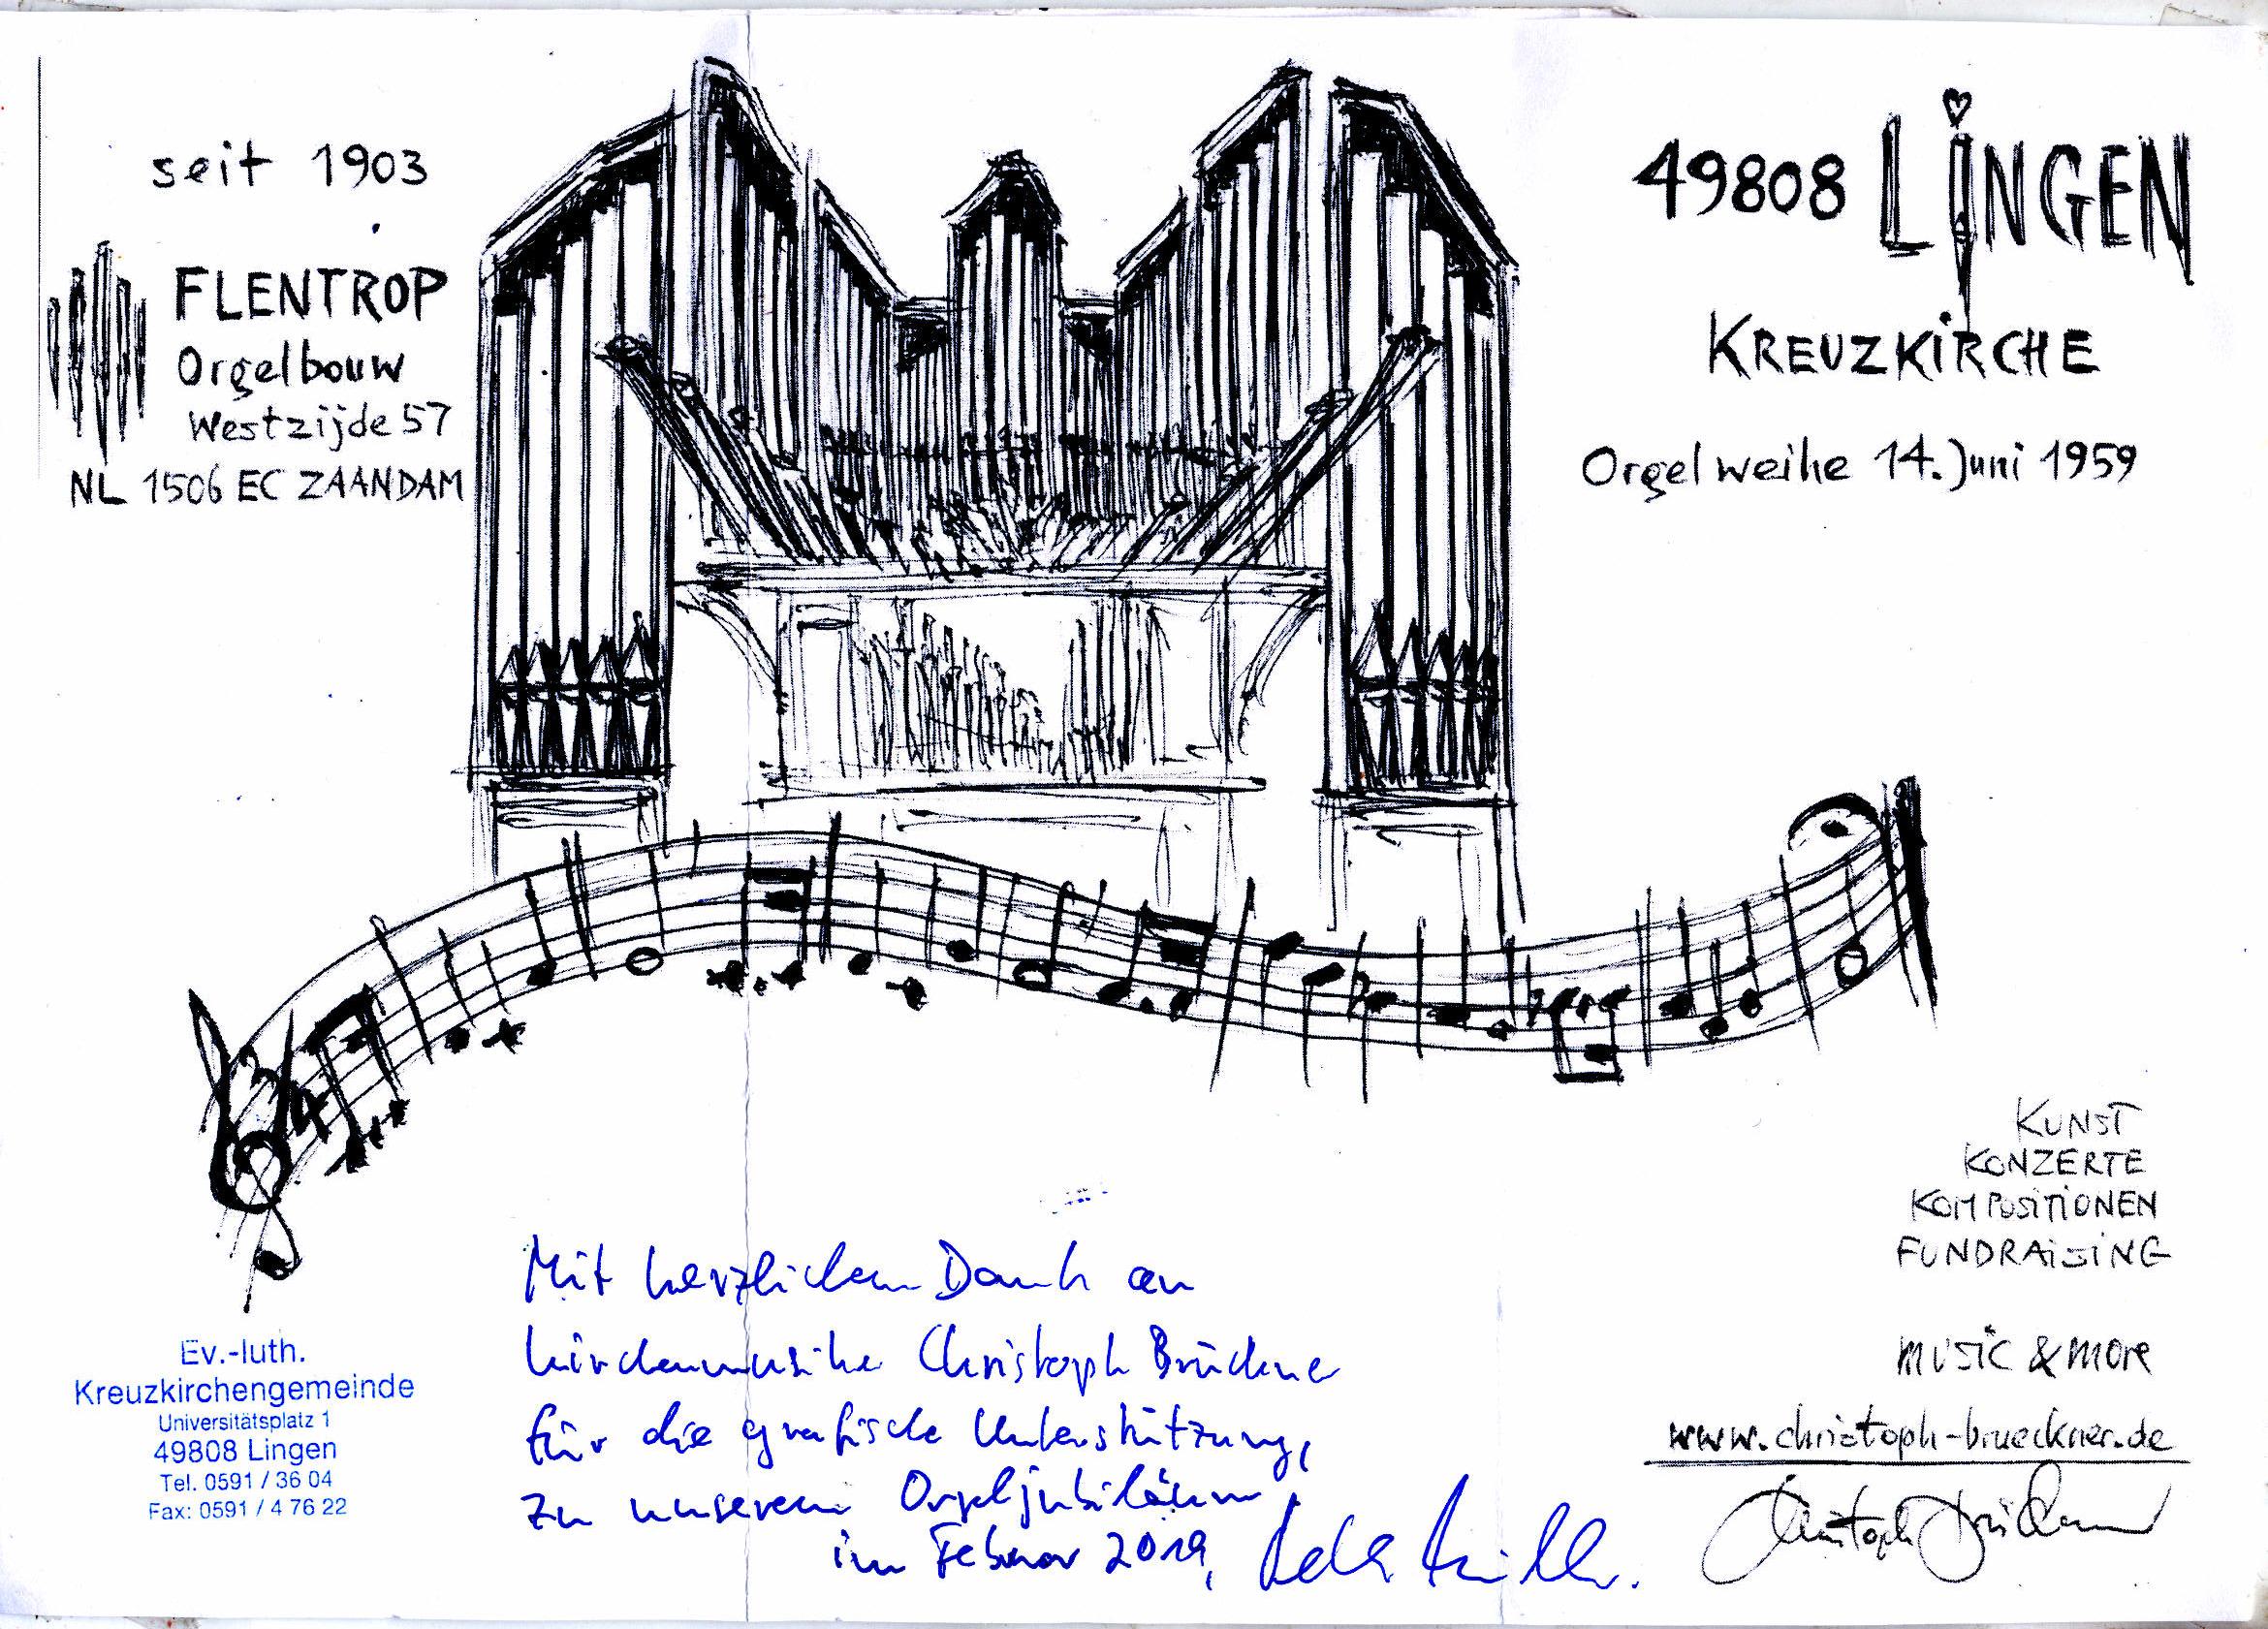 seit 1903
FLENTROP
Orgelbouw
Westzijde 57
NL 1506 EC ZAANDAM
49808 LiNGEN
KREUZKiRCHE
Orgelweihe 14. Juni 1959
3
4
KUNST
KONZERTE
KOMPOSiTiONEN
FUNDRAiSiNG
music & more
www.christoph-brueckner.de
Christoph Brückner
Ev.-luth.
Kreuzkirchengemeinde
Universitätsplatz 1
49808 Lingen
Tel. 0591 / 36 04
Fax: 0591 / 4 76 22
Mit herzlichem Dank an
Kirchenmusiker Christoph Brückner
für die grafische Unterstützung,
zu unserem Orgeljubiläum
im Februar 2019,